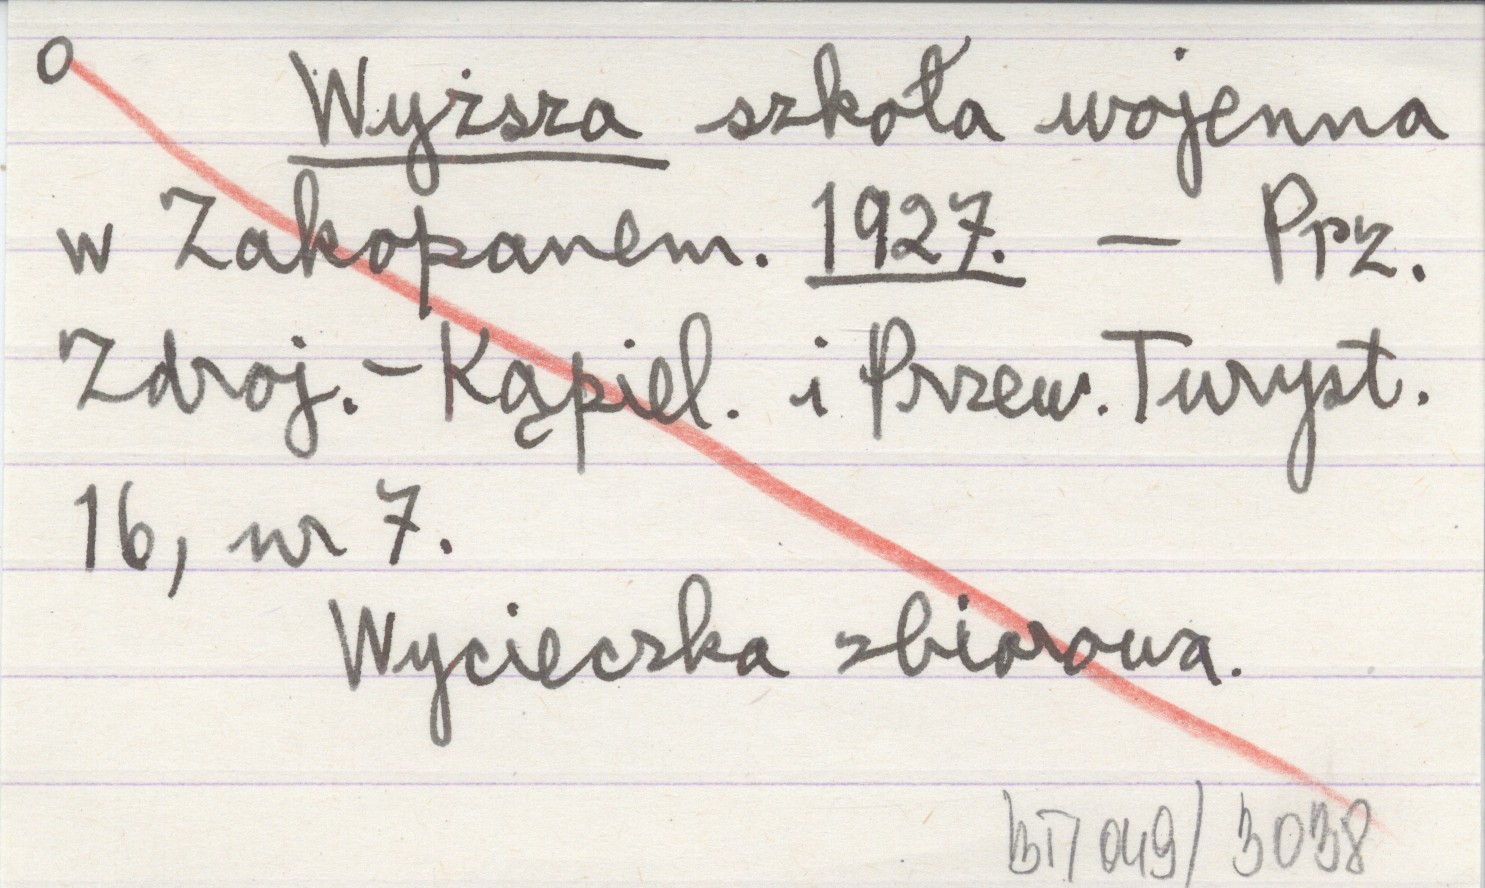 O Wyższa szkoła wojenna
w Zakopanem. 1927. — Prz.
Zdroj.-Kąpiel. i Przew. Turyst.
16, nr 7.
Wycieczka zbiorowa.
BT/049/3038